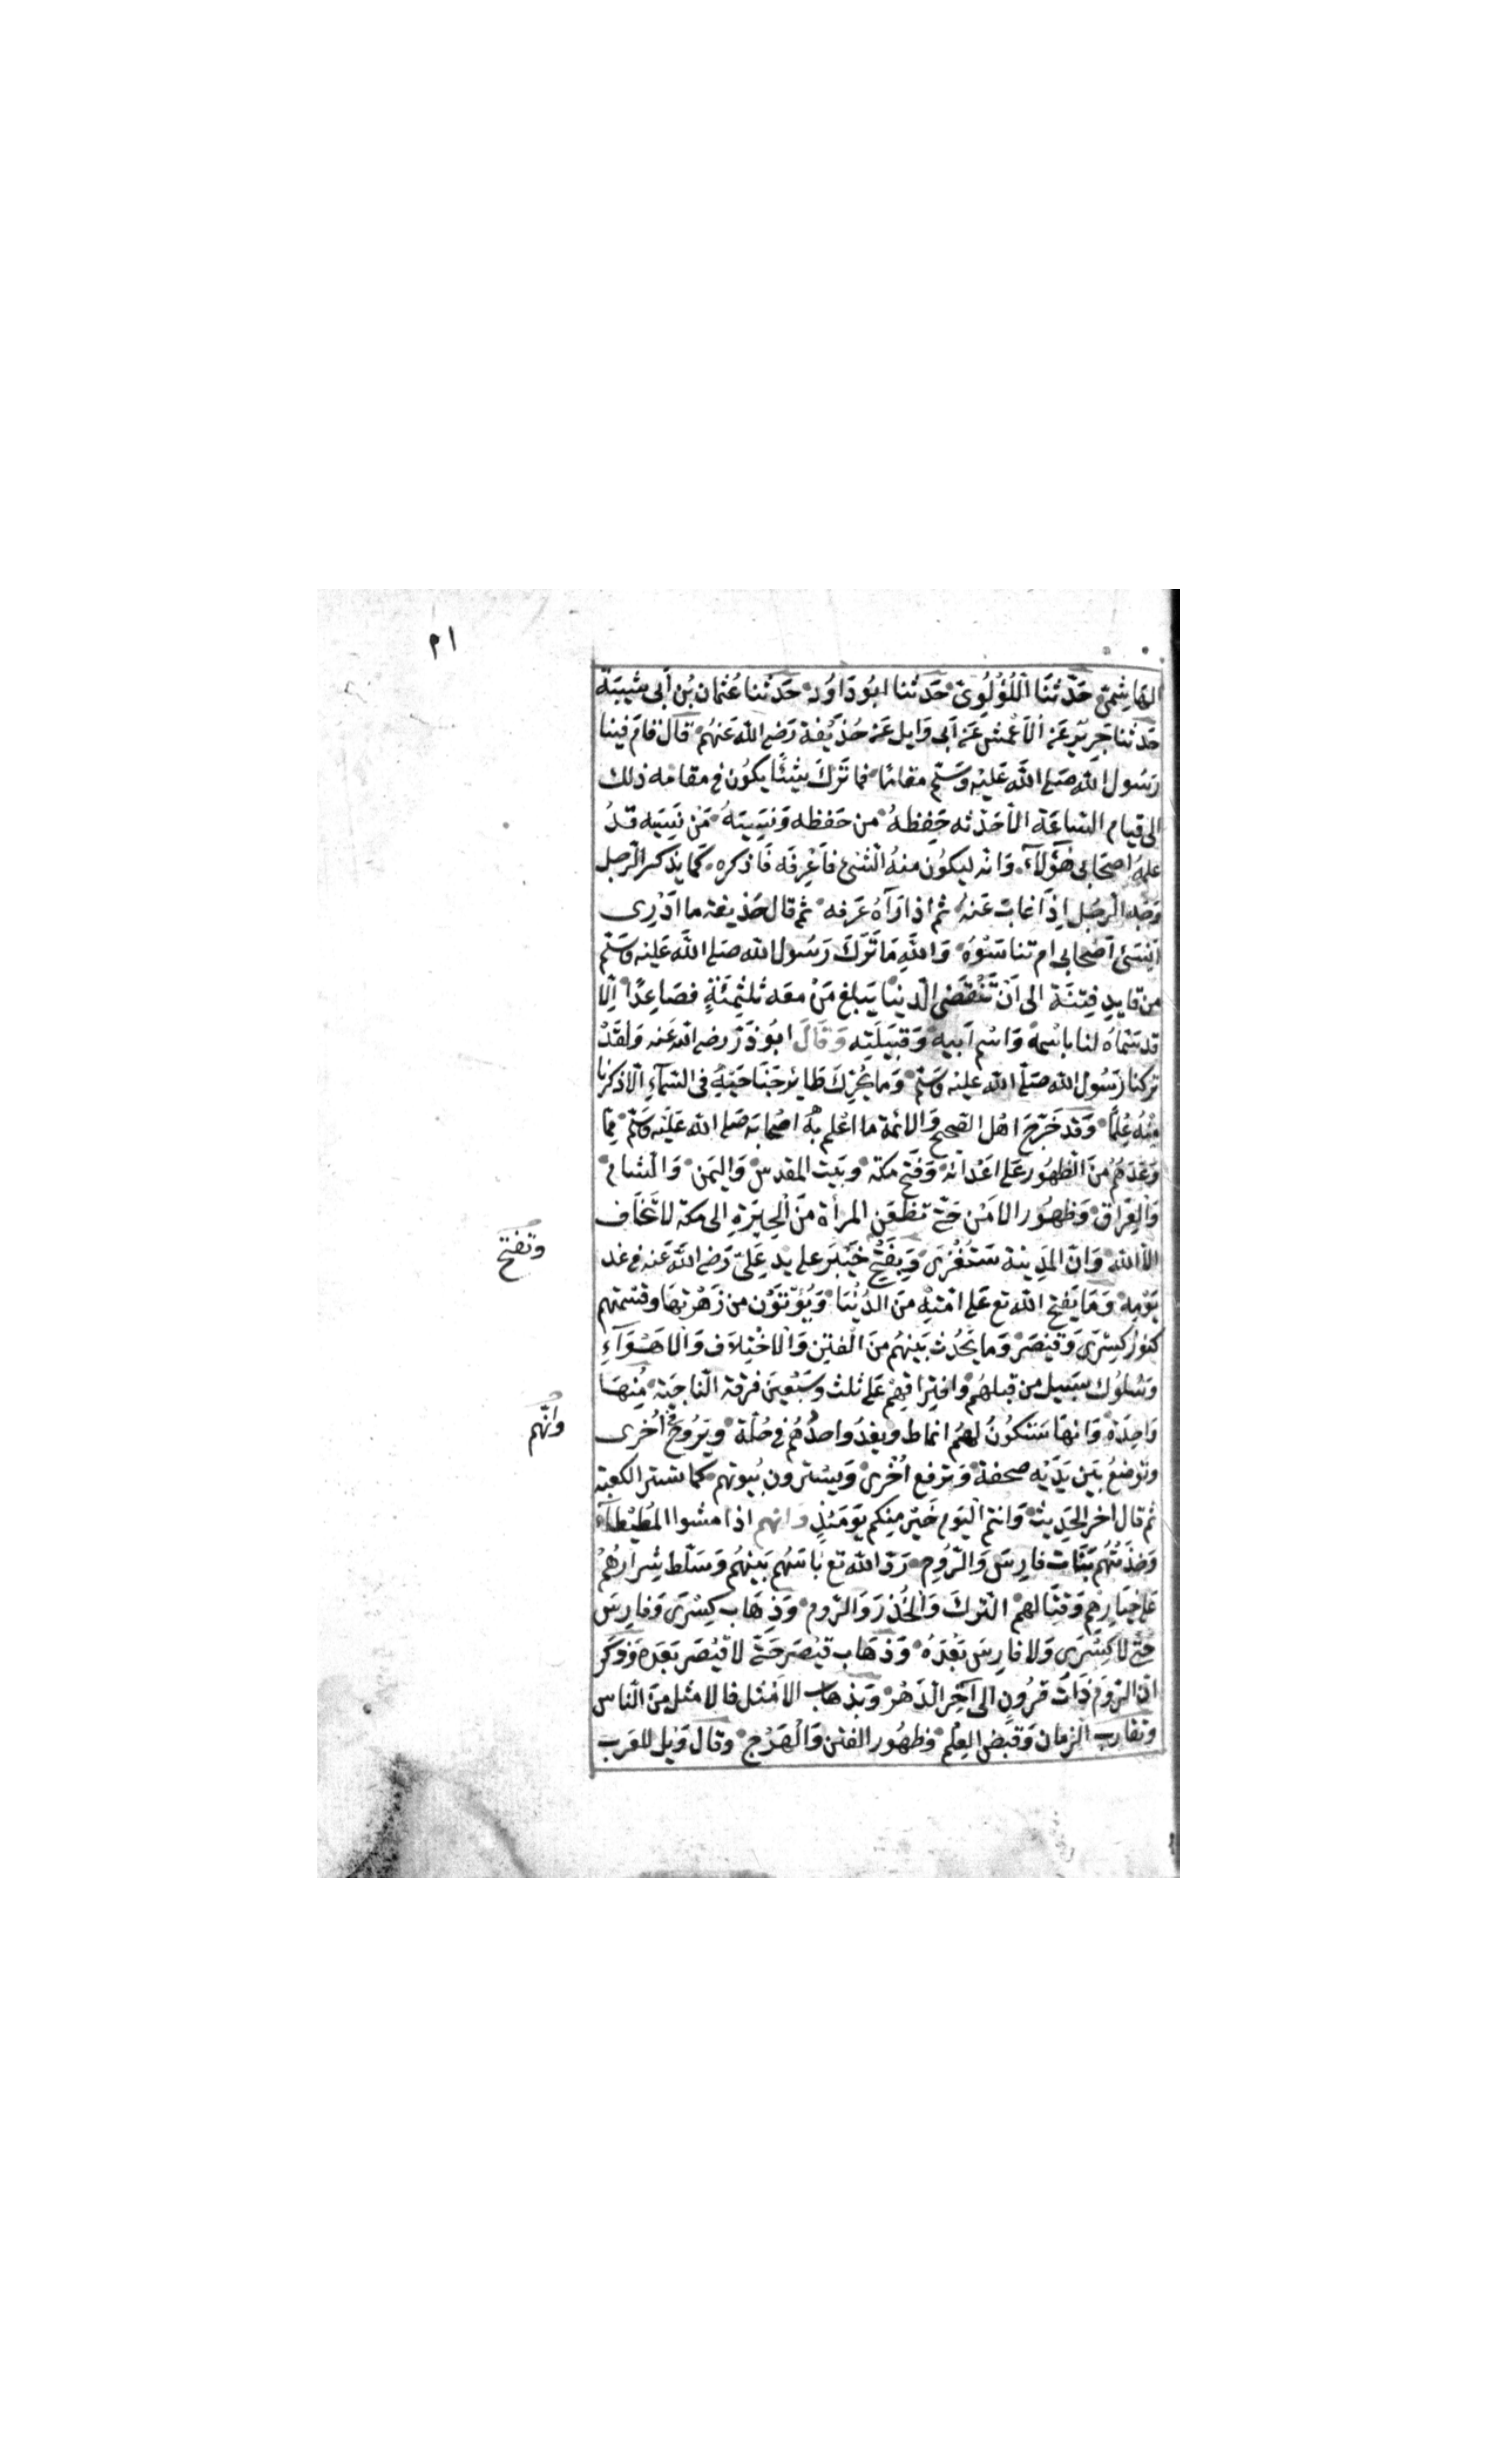 ٩١
الهاشمي حَدَّثَنَا اللُّؤْلُوِىّ حَدثنا ابُو دَاوُد حَدثنا عُثمان بُن أبى شيبَة
حَدثنا جَرِير عَن الاَعْمش عَن اَبى وَايل عَن حُذيْفة رَضي الله عَنهُم قال قامَ فينا
رَسُول الله صَلى الله عَليْه وَسَلم مقامًا فما تَركَ شيئًا يكُون في مقامه ذلك
الى قيام السَّاعَة الاّ حَدّثه حَفِظهُ من حَفظه وَنسِيَهُ مَنْ نَسِيَه قدْ
علمهُ اصحَابى هَؤلآء وَانه ليكُون منهُ الشئ فاَعْرِفه فَاذكره كما يذكر الرّجل
وَجْه الرجُل اِذَا غابَ عَنهُ ثم اذا رَآهُ عَرفه ثم قال حُذيفة ما ادْرِى
اَنسىَ اَصْحابى ام تنا سَوْهُ وَاللهِ مَا تَركَ رَسُول الله صَلى الله عَليْه وَسَلم
من قايدِ فِتنَة الى اَنْ تَنْقضى الدنيَا يَبلغ مَنْ معَه ثلثِمئَةٍ فصَاعِدًا اِلا
قد سَمّاهُ لنا باسْمه وَاسْم اَبيه وَقبيلَتِه وَقَالَ ابُوذَرٍّ رضي الله عَنه وَلقدْ
تركنا رَسُول الله صَلى الله عليْه وَسَلم وَما يحُرِّك طَايرٌ جَنَاحَيْهِ في السَّمآءِ الاّ ذكرنا
مِنْهُ عِلمًا وَقد خَرّجَ اهْل الصحيح وَالائمة ما اعْلم بهِ اصْحابَه صَلى الله عَليْه وسَلم مما
وَعَدَهُم منَ الظهُور عَلى اعْدائه وَفَتْح مكة وبَيت المقدسْ وَاليمَن وَالشام
وَالعِرَاق وَظهُور الامْن حَتى تظعَن المرأة منَ الحِيرَة الى مكة لا تَخَاف
الاّ الله وَانّ المَدِينة سَتُغْزَى وَيفْتَح خيْبَر على يدِ عَليّ رَضي الله عَنه في غد
وتفتح
يَوْمِه وَمَا يَفتح الله تع عَلى امَّتِه منَ الدُّنْيَا وَيُؤْتَوْن من زَهْرتهَا وقسْمتهم
كنوز كِسْرَى وَقيْصَر وَما يَحْدُث بَينهُم منَ الفتَن وَالاخْتِلاَف وَالاَهْوَآءِ
وَسُلُوك سَبيل من قبلهُم وَافتِراقهِم عَلى ثلث وسَبْعينَ فرْقة الناجيَة مِنهَا
وَاحدَة وَانهَا سَتكُونُ لهُم انماط وَيغدُو احدُهُم في حُلّة وَيرُوحُ في اُخرى
وانّهم
وتوضعُ بَين يَدَيْه صحفة وَترفع اُخْرى وَيسْترون بُيوتهم كما تستر الكعبة
ثم قال اخر الحَديث وَانتم اليَوم خَيْر منكم يَوْمَئذٍ وانهم اذا مشوا المُطيْطَآء
وَخَدَمتْهُم بَنَات فارِسَ وَالرُّوم رَدّ الله تع بَاسَهم بَيْنهُم وَسَلّط شِرارَهُمْ
عَلى خِيَارِهم وَقتَالهم التركَ وَالخُذرَ وَالرّوم وَذِهَاب كِسْرَى وَفارِسَ
حَتى لا كِسْرَى وَلا فارِسَ بَعْدَهُ وَذهَاب قيْصَر حَتى لا قيْصَر بَعْدَه وَذكر
انّ الرّوم ذَاتَ قرُون الى آخِر الدَهْر وَبذهاب الاَمْثل فالامثل منَ الناس
وتقارب الزمَان وَقبْض العِلم وَظهُور الفتن وَالهَرْج وقال وَيْل للعَرب